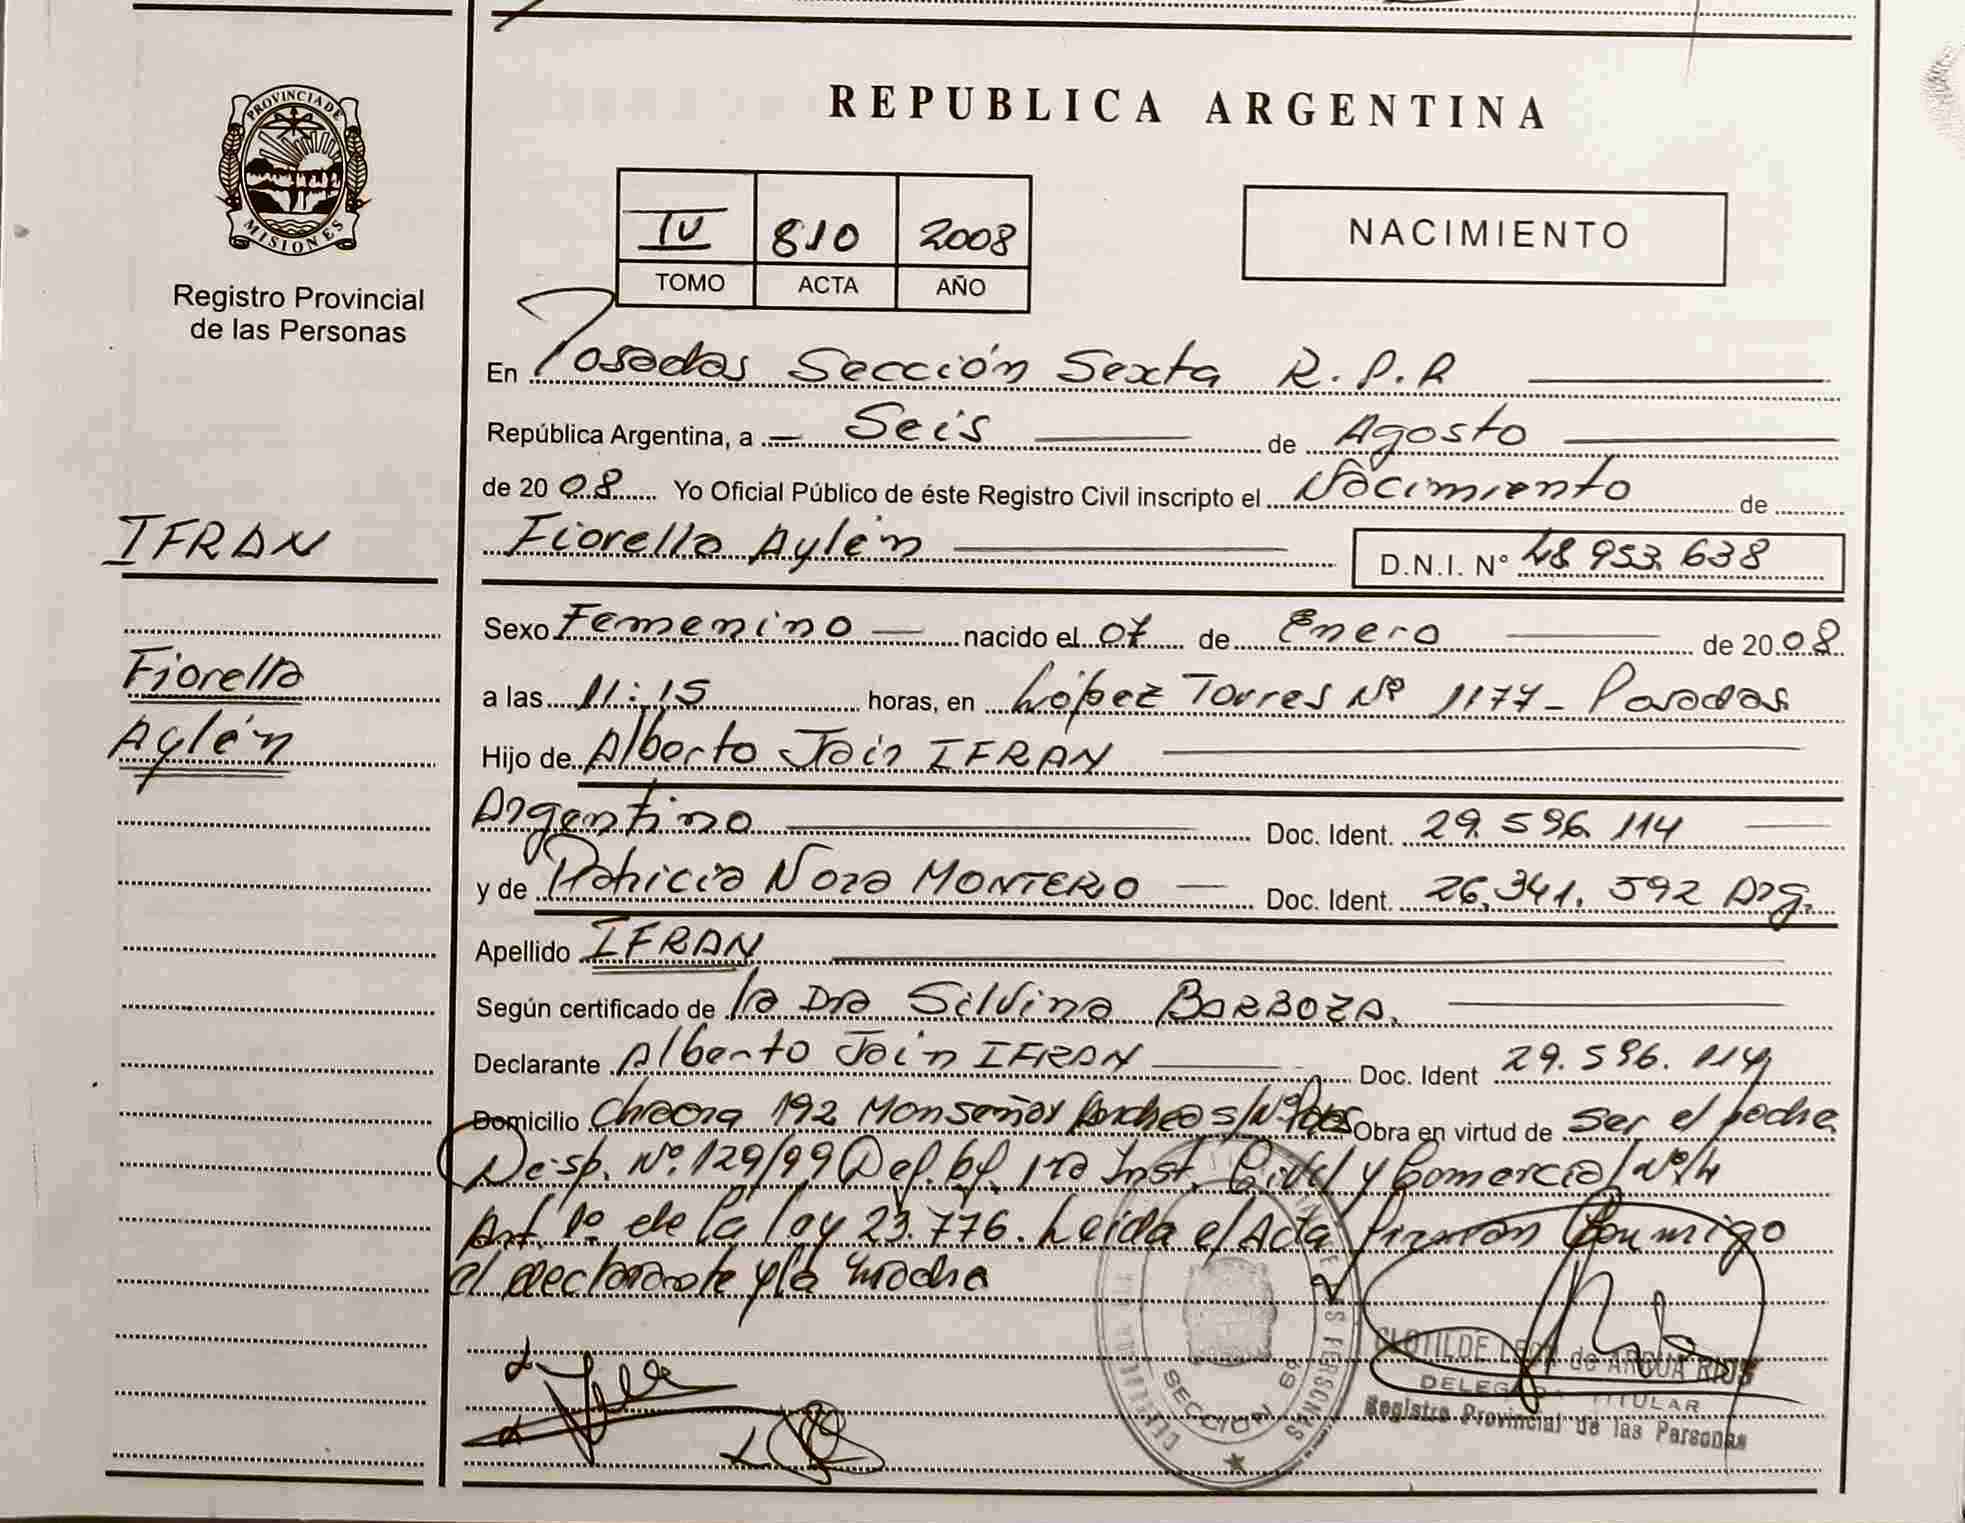 REPUBLICA ARGENTINA
PROVINCIA DE MISIONES
Registro Provincial
de las Personas
IV 810 2008
TOMO ACTA AÑO
NACIMIENTO
En Posadas Sección Sexta R.P.P
República Argentina, a Seis de Agosto
de 2008 Yo Oficial Público de éste Registro Civil inscripto el Nacimiento de
IFRAN
Fiorella Aylén D.N.I. Nº 48.953.638
Sexo Femenino nacido el 07 de Enero de 2008
Fiorella
a las 11:15 horas, en López Torres Nº 1177 - Posadas
Aylén
Hijo de Alberto Join IFRAN
Argentino Doc. Ident. 29.596.114
y de Patricia Nora MONTERO Doc. Ident. 26.341.592 Arg.
Apellido IFRAN
Según certificado de la Dra Silvina BARBOZA.
Declarante Alberto Join IFRAN Doc. Ident 29.596.114
Domicilio Chacra 192 Monseñor s/Nº Pdas Obra en virtud de ser el padre
Desp. Nº 129/99 Def. 1ra Inst. Civil y Comercial Nº 4
Art. 1º de la ley 23.776. Leida el Acta firman Conmigo
el declarante y la madre
SECCION 6ª
CLOTILDE LEON de
DELEGADA TITULAR
Registro Provincial de las Personas